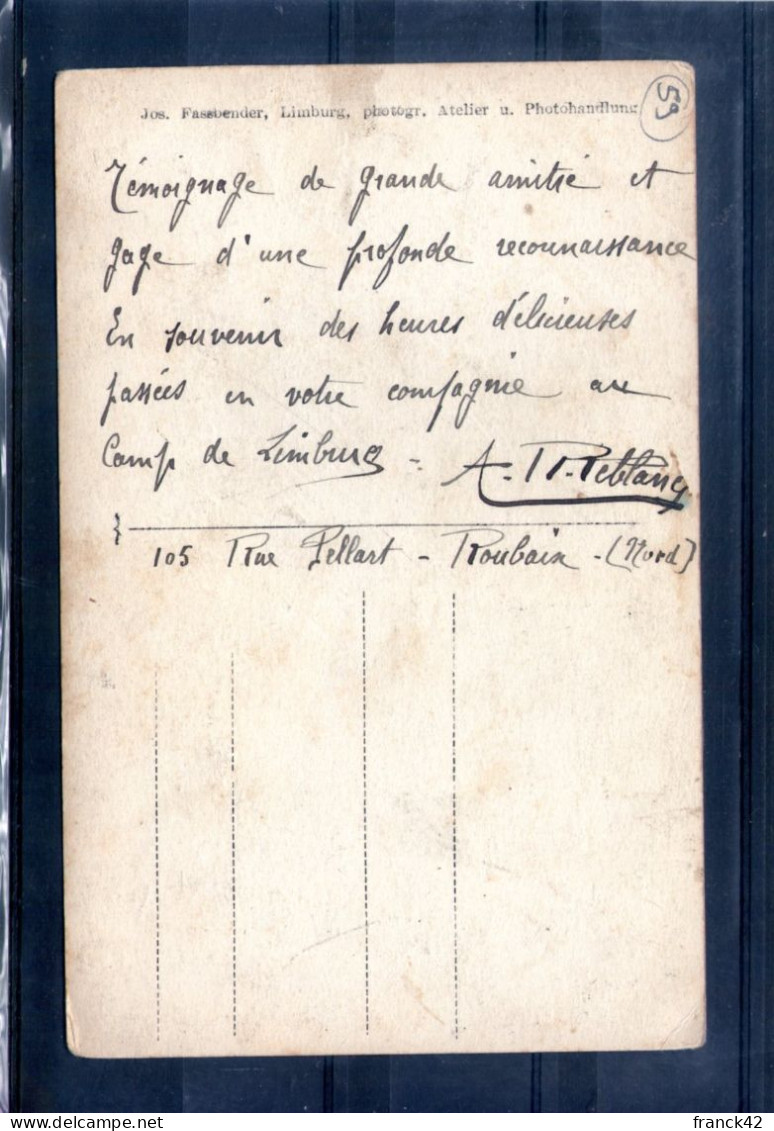 Jos. Fassbender, Limburg, photogr. Atelier u. Photohandlung
59
Témoignage de grande amitié et
gage d'une profonde reconnaissance
En souvenir des heures délicieuses
passées en votre compagnie au
Camp de Limburg -
105 Rue Pellart - Roubaix - (Nord)
franck42